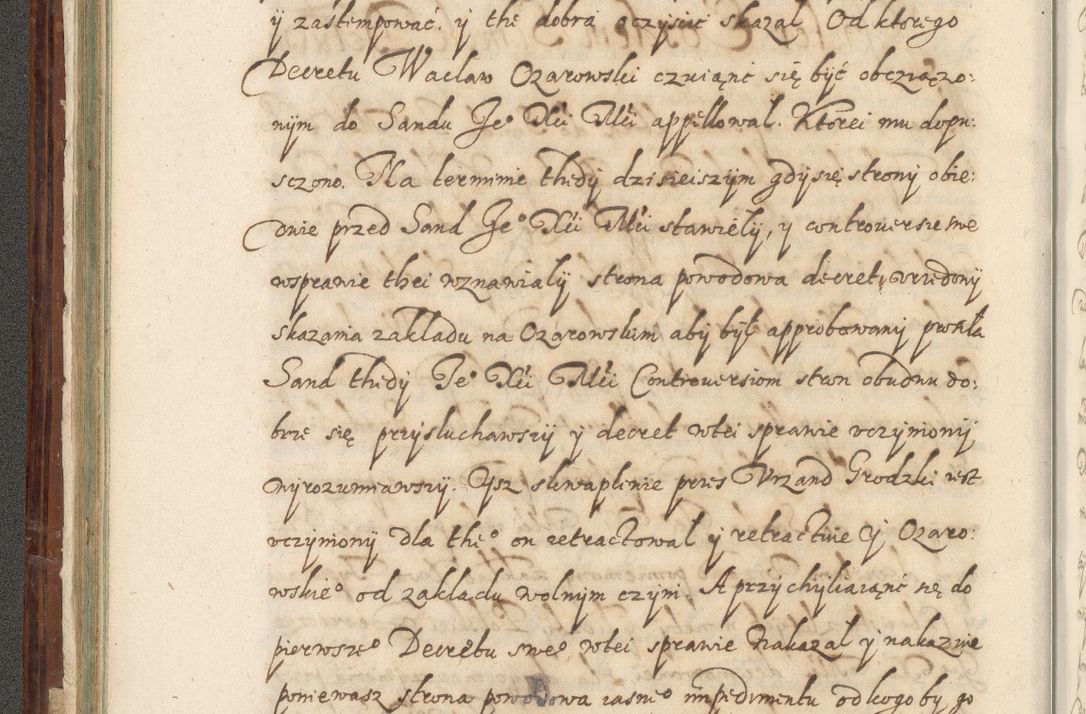 ÿ zastempować. ÿ the dobra oczÿscić skazal Od ktorego
Decretu Waclaw Ozarowski czuiąnc się być obcziązo:
nÿm do Sandu Je° Xci Mci appellowal. Ktorei mu dopu:
sczono. Na terminie thedÿ dzisieiszÿm gdÿ się stronÿ obie:
dwie przed Sand Je° Xci Mci stawielÿ, ÿ controuersie swe
wsprawie thei wznawialÿ strona powodowa decret vrzedowÿ
skazania zakladu na Ozarowskim abÿ bÿł approbowanÿ prosiła
Sand thedÿ Je° Xci Mci Controuersiom stron obudwu do:
brze się przÿsluchawszÿ ÿ decret wtei sprawie vczÿnionÿ
wÿrozumiawszÿ. Ysz skwaplenie przes Vrzand Grodzki iest
vczÿnionÿ dla the° on retractowal ÿ retractuie Ÿ Ozaro:
wskie° od zakladu wolnÿm czÿni. A przÿchÿliaiąnc się do
pierwsze° Decretu swe° wtei sprawie Nakazal ÿ nakazuie
poniewasz strona powodowa iasne° impedimentu od kogo by go